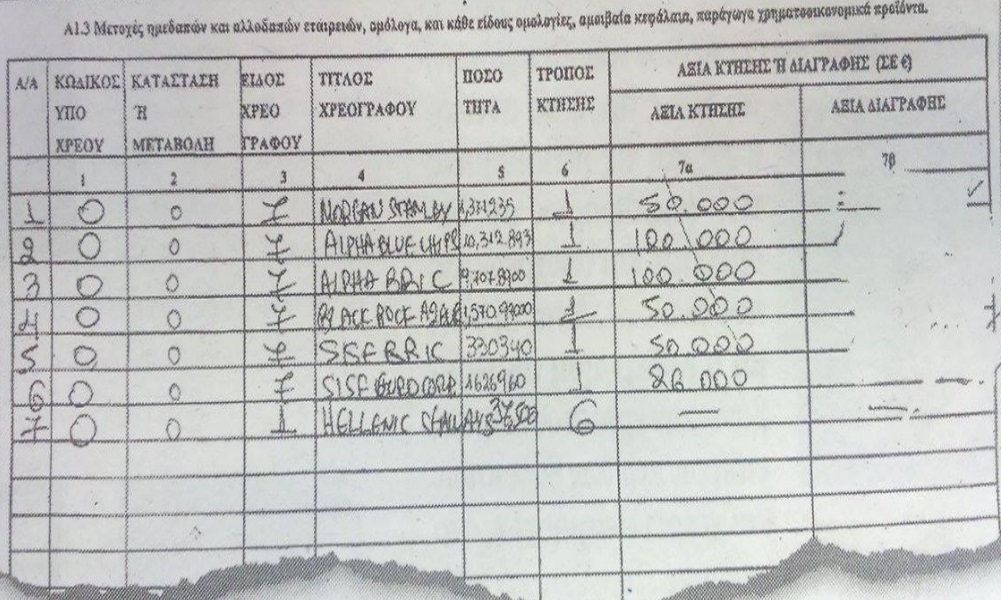 Α1.3 Μετοχές ημεδαπών και αλλοδαπών εταιρειών, ομόλογα, και κάθε είδους ομολογίες, αμοιβαία κεφάλαια, παράγωγα χρηματοοικονομικά προϊόντα.
Α/Α ΚΩΔΙΚΟΣ ΚΑΤΑΣΤΑΣΗ ΕΙΔΟΣ ΤΙΤΛΟΣ ΠΟΣΟ ΤΡΟΠΟΣ ΑΞΙΑ ΚΤΗΣΗΣ Ή ΔΙΑΓΡΑΦΗΣ (ΣΕ €)
ΥΠΟ Ή ΧΡΕΟ ΧΡΕΟΓΡΑΦΟΥ ΤΗΤΑ ΚΤΗΣΗΣ ΑΞΙΑ ΚΤΗΣΗΣ ΑΞΙΑ ΔΙΑΓΡΑΦΗΣ
ΧΡΕΟΥ ΜΕΤΑΒΟΛΗ ΓΡΑΦΟΥ
1 2 3 4 5 6 7α 7β
1 0 0 7 MORGAN STANLEY 1 50.000
2 0 0 7 ALPHA BLUE CHIPS 10,312.893 1 100.000
3 0 0 7 ALPHA BRIC 9,707.8900 1 100.000
4 0 0 7 BLACK ROCK 1 50.000
5 0 0 7 BRIC 330340 1 50.000
6 0 0 7 1626960 1 26.000
7 0 0 1 HELLENIC 37500 6 —